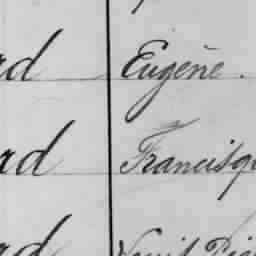 rd Eugène.
rd Francisqu
rd